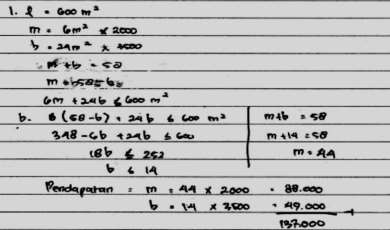 1. l = 600 m²
m = 6m² x 2000
b = 24m² x 3500
m + b = 58
6m + 24b ≤ 600 m²
b. 6 (58-b) + 24b ≤ 600 m²
348 - 6b + 24b ≤ 600
18b ≤ 252
b ≤ 14
m+b = 58
m + 14 = 58
m = 44
Pendapatan = m = 44 x 2000 = 88.000
b = 14 x 3500 = 49.000 +
137.000